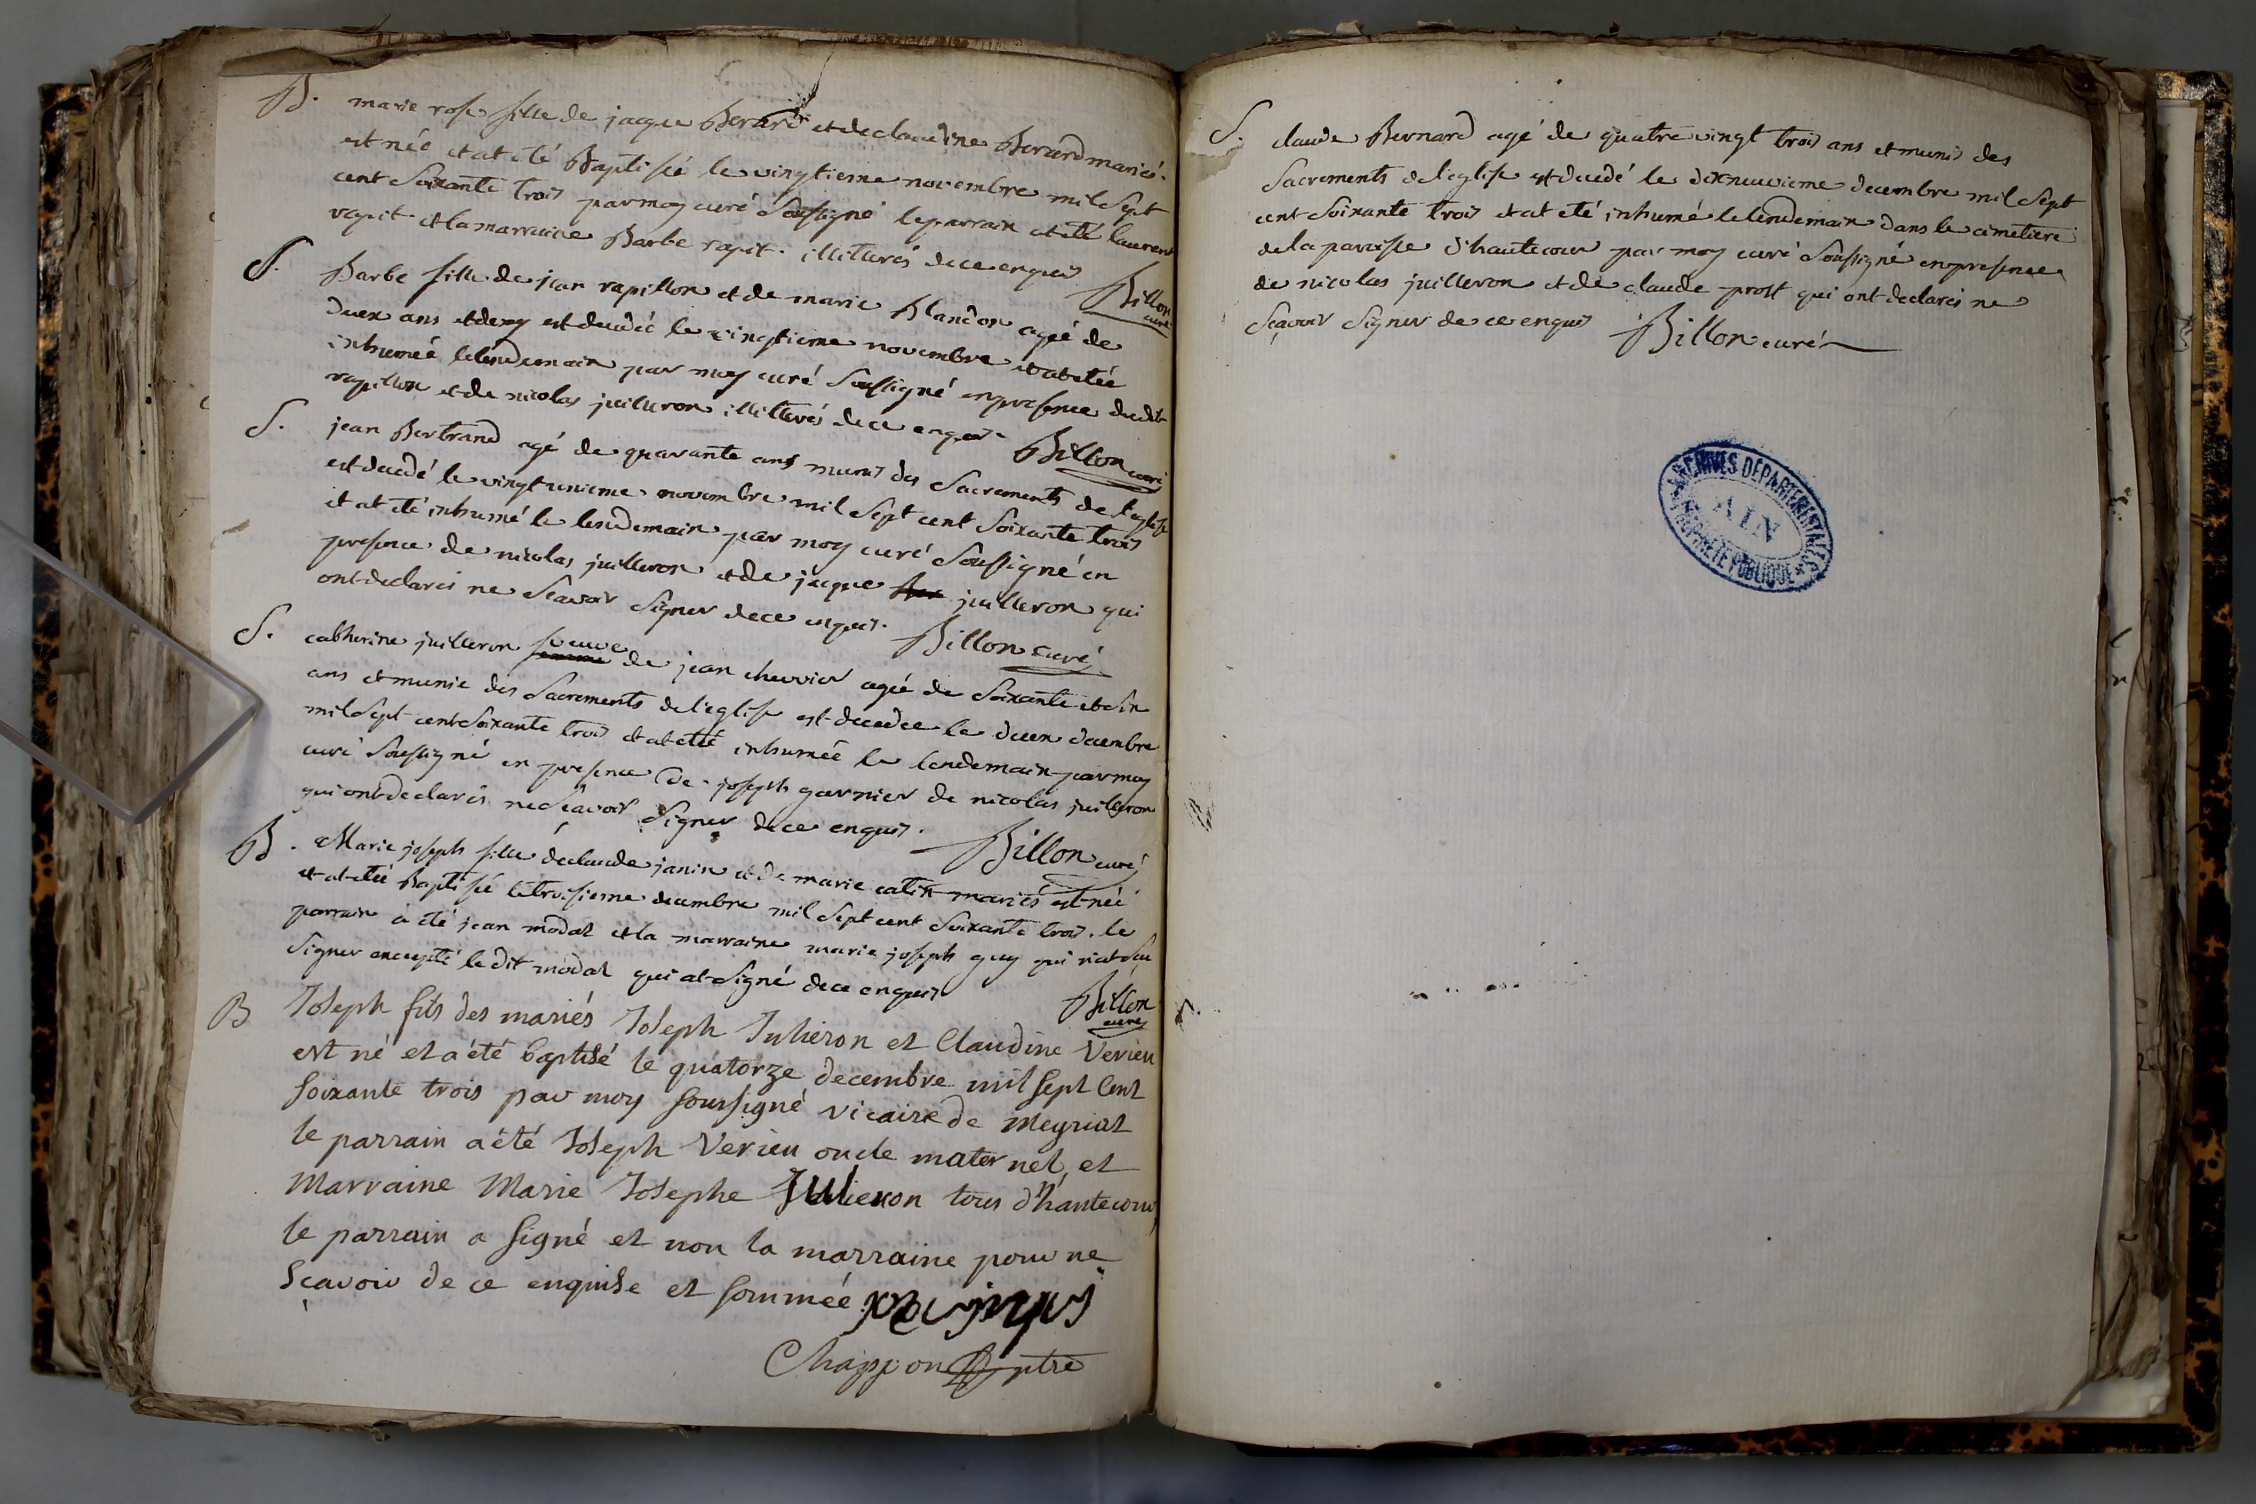 B. marie rose fille de jacque Berard et de claudine Berard mariés.
est née et at eté Baptisée le vingtieme novembre mil sept
cent soixante trois par moy curé soussigné le parrain at eté laurent
rapit et la marraine Barbe rapit. illiterés de ce enquis
Billon
curé
S. Barbe fille de jean rapillon et de marie Blandon ageé de
deux ans et demy est decedée le vingtieme novembre et at eteé
inhumeé le lendemain par moy curé soussigné en presence dudit
rapillon et de nicolas juilleron illiterés de ce enquis. Billon curé
S. jean Bertrand agé de quarante ans munis des sacrements de l'eglise
est decedé le vingt unieme novembre mil sept cent soixante trois
et at eté inhumé le lendemain par moy curé soussigné en
presence de nicolas juilleron et de jacque juilleron qui
ont declarés ne scavoir signer de ce enquis. Billon curé
S. catherine juilleron veuve de jean chevrier ageé de soixante et six
ans et munie des sacrements de l'eglise est decedee le deux decembre
mil sept cent soixante trois et at eteé inhumeé le lendemain par moy
curé soussigné en presence de joseph garnier de nicolas juilleron
qui ont declarés ne scavoir signer de ce enquis. Billon curé
B. Marie joseph fille de claude janin et de marie catin mariés est neé
et at eteé Baptisée le troisieme decembre mil sept cent soixante trois. le
parrain à eté jean modal et la marraine marie joseph guy qui n'at su
signer excepté le dit modal qui at signé de ce enquis
Billon
curé
B Joseph fils des mariés Joseph Julieron et Claudine Verieu
est né et a été baptisé le quatorze decembre mil sept cent
soixante trois par moy soussigné vicaire de meyriat
le parrain a été Joseph Verieu oncle maternel, et
Marraine Marie Josephe Julieron tous d'hautecour,
le parrain a signé et non la marraine pour ne
sçavoir de ce enquise et sommée
Chappon ptre
S. claude Bernard agé de quatre vingt trois ans et munis des
Sacrements de l'eglise est decedé le dixneuvieme decembre mil sept
cent soixante trois et at eté inhumé le lendemain dans le cimetiere
de la paroisse d'hautecour par moy curé soussigné en presence
de nicolas juilleron et de claude prost qui ont declarés ne
sçavoir signer de ce enquis Billon curé
ARCHIVES DÉPARTEMENTALES
AIN
PROPRIÉTÉ PUBLIQUE